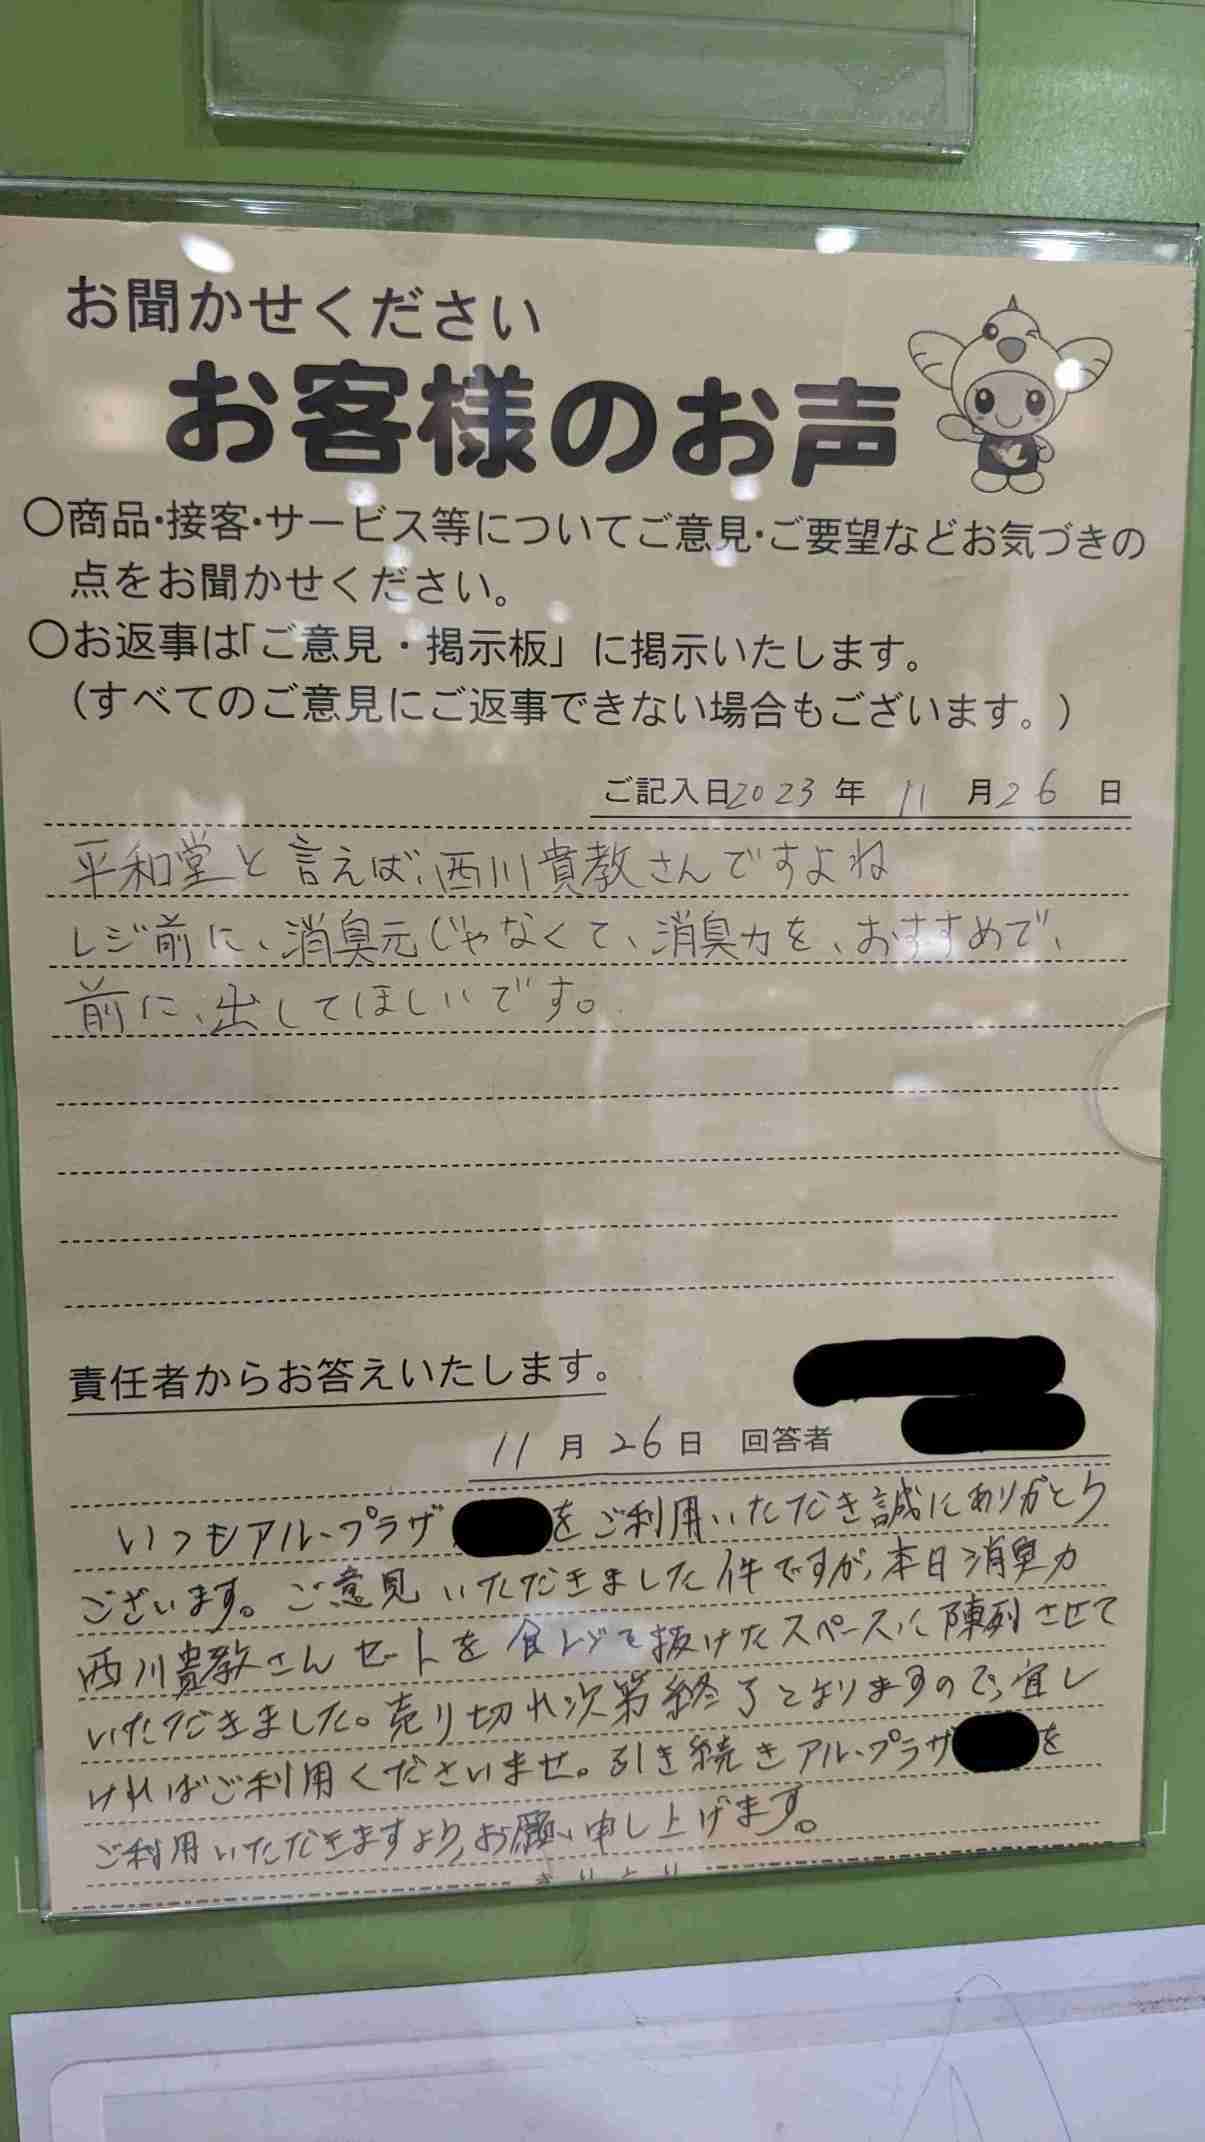 お聞かせください
お客様のお声
〇商品・接客・サービス等についてご意見・ご要望などお気づきの
点をお聞かせください。
〇お返事は「ご意見・掲示板」に掲示いたします。
（すべてのご意見にご返事できない場合もございます。）
ご記入日2023年 11月26日
平和堂と言えば、西川貴教さんですよね
レジ前に、消臭元じゃなくて、消臭力を、おすすめで、
前に、出してほしいです。
責任者からお答えいたします。
11月26日 回答者
いつもアル・プラザ をご利用いただき誠にありがとう
ございます。ご意見いただきました件ですが、本日消臭力
西川貴教さんセットを食レジで抜けたスペースに陳列させて
いただきました。売り切れ次第終了となりますので、宜し
ければご利用くださいませ。引き続きアル・プラザ を
ご利用いただきますよう、お願い申し上げます。
きりとり